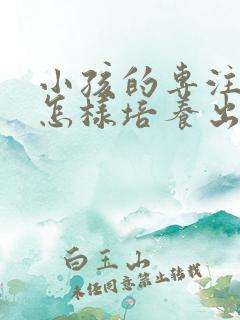 小孩的专注
怎样培养出
白玉山
未经同意禁止转载